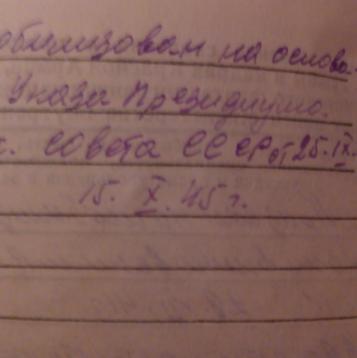 обилизован на основа
Указа Президиума.
с. Совета СССР от 25.IX.
15. X. 45 г.